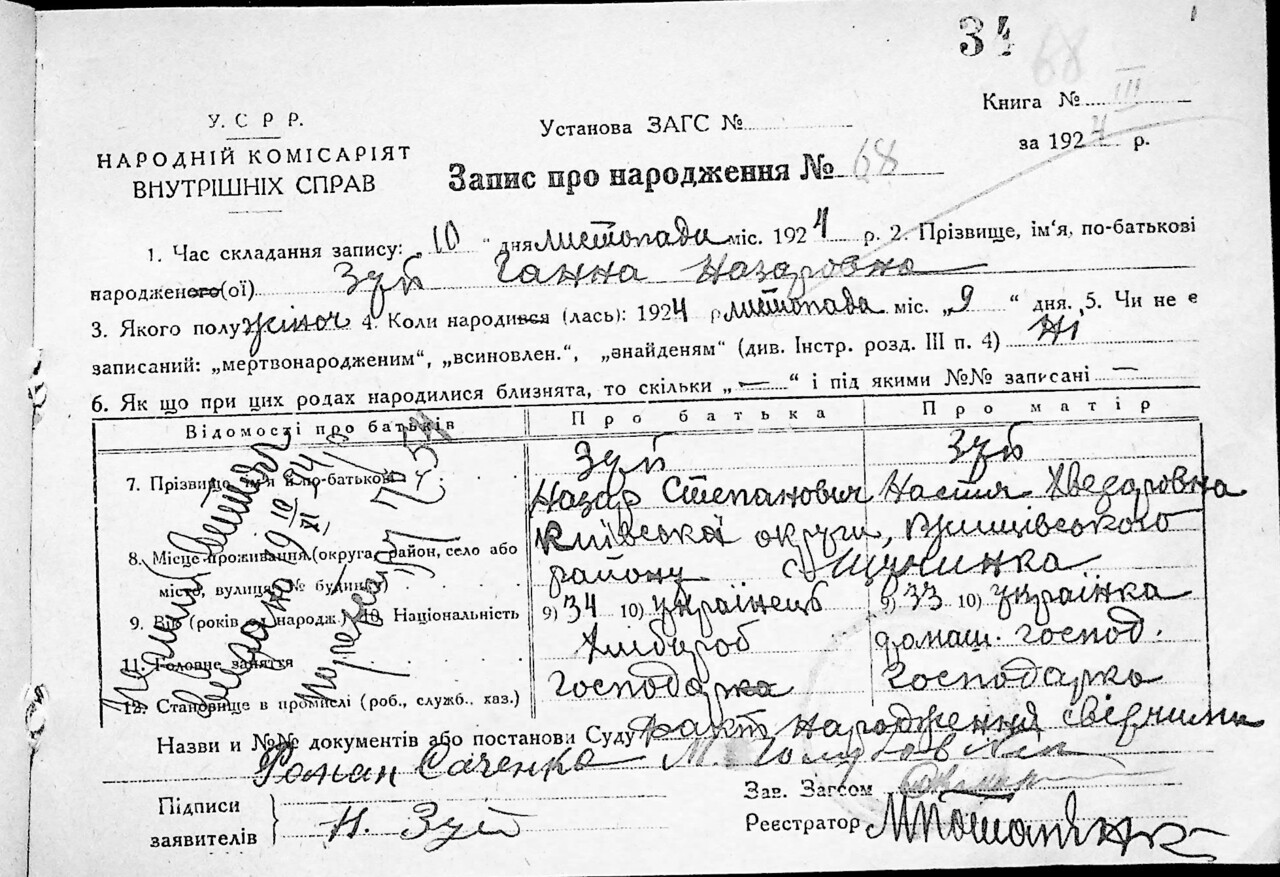 34
68
Книга № III
У. С. Р. Р.
Установа ЗАГС №
за 1924 р.
НАРОДНІЙ КОМІСАРІЯТ
ВНУТРІШНІХ СПРАВ
Запис про народження № 68
1. Час складання запису: „10“ дня листопада міс. 1924 р. 2. Прізвище, ім'я, по-батькові
народженого(ої) Зуб Ганна Назаровна
3. Якого полу жіноч 4. Коли народився (лась): 1924 р. листопада міс. „9“ дня. 5. Чи не є
записаний: „мертвонародженим“, „всиновлен.“, „знайденям“ (див. Інстр. розд. III п. 4) Ні
6. Як що при цих родах народилися близнята, то скільки „—“ і під якими №№ записані —
Відомості про батьків Про батька Про матір
7. Прізвище, ім'я й по-батькові Зуб Зуб
Назар Степанович Настя Хведоровна
8. Місце проживання (округа, район, село або Київської округи, Ржищівського
місто, вулиця, № будинку) району с. Щучинка
9. Вік (років од народж.) 10. Національність 9) 34 10) українець 9) 33 10) українка
11. Головне заняття Хлибороб домаш. господ.
12. Становище в промислі (роб., служб., хаз.) Господарка Господарка
Назви и №№ документів або постанови Суду Факт народження свідчили
Роман Саченко М.
Підписи
заявителів Н. Зуб
Зав. Загсом
Реєстратор